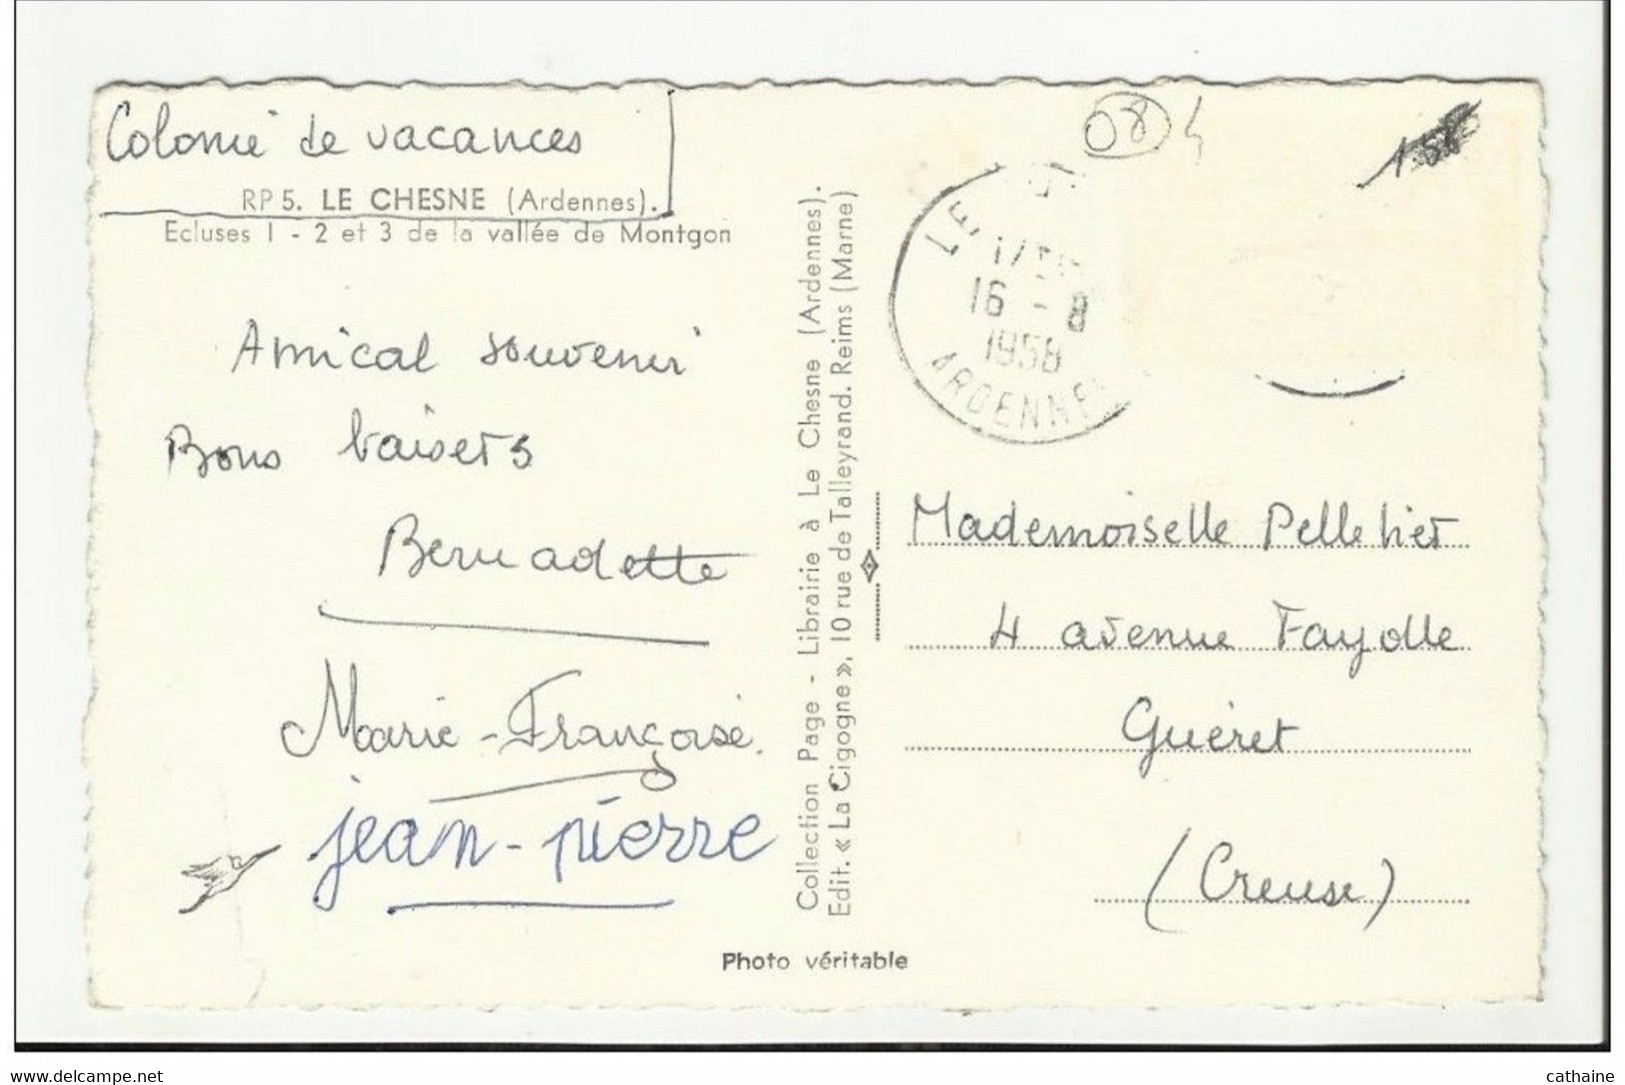 Colonie de vacances
RP 5. LE CHESNE (Ardennes).
Ecluses 1 - 2 et 3 de la vallée de Montgon
Amical souvenir
Bons baisers
Bernadette
Marie-Françoise.
jean-pierre
Collection Page - Librairie à Le Chesne (Ardennes).
Edit. « La Cigogne », 10 rue de Talleyrand. Reims (Marne)
Photo véritable
08
LE
16 - 8
1958
ARDENNE
Mademoiselle Pelletier
4 avenue Fayolle
Guéret
(Creuse)
www.delcampe.net
cathaine